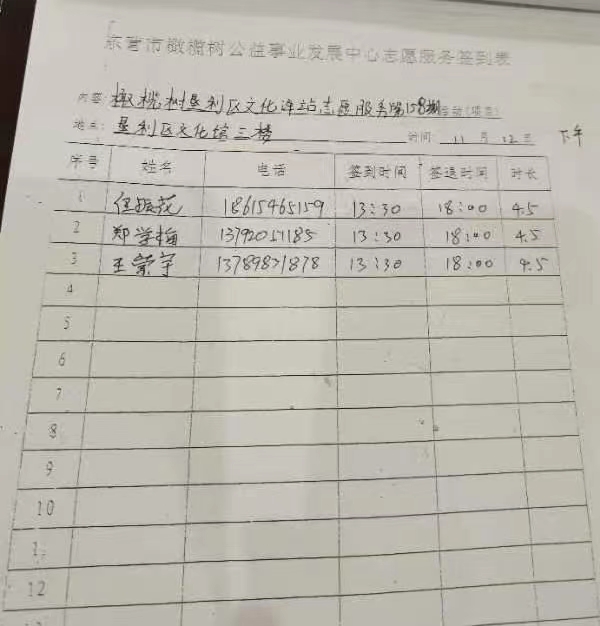 东营市橄榄树公益事业发展中心志愿服务签到表
内容:橄榄树垦利区文化连站志愿服务第158期活动(项目)
地点:垦利区文化馆三楼 时间:11月12日 下午
序号 姓名 电话 签到时间 签退时间 时长
1 任振花 18615465159 13:30 18:00 4.5
2 郑学梅 13792051185 13:30 18:00 4.5
3 王荣宇 13789871878 13:30 18:00 4.5
4
5
6
7
8
9
10
1
12